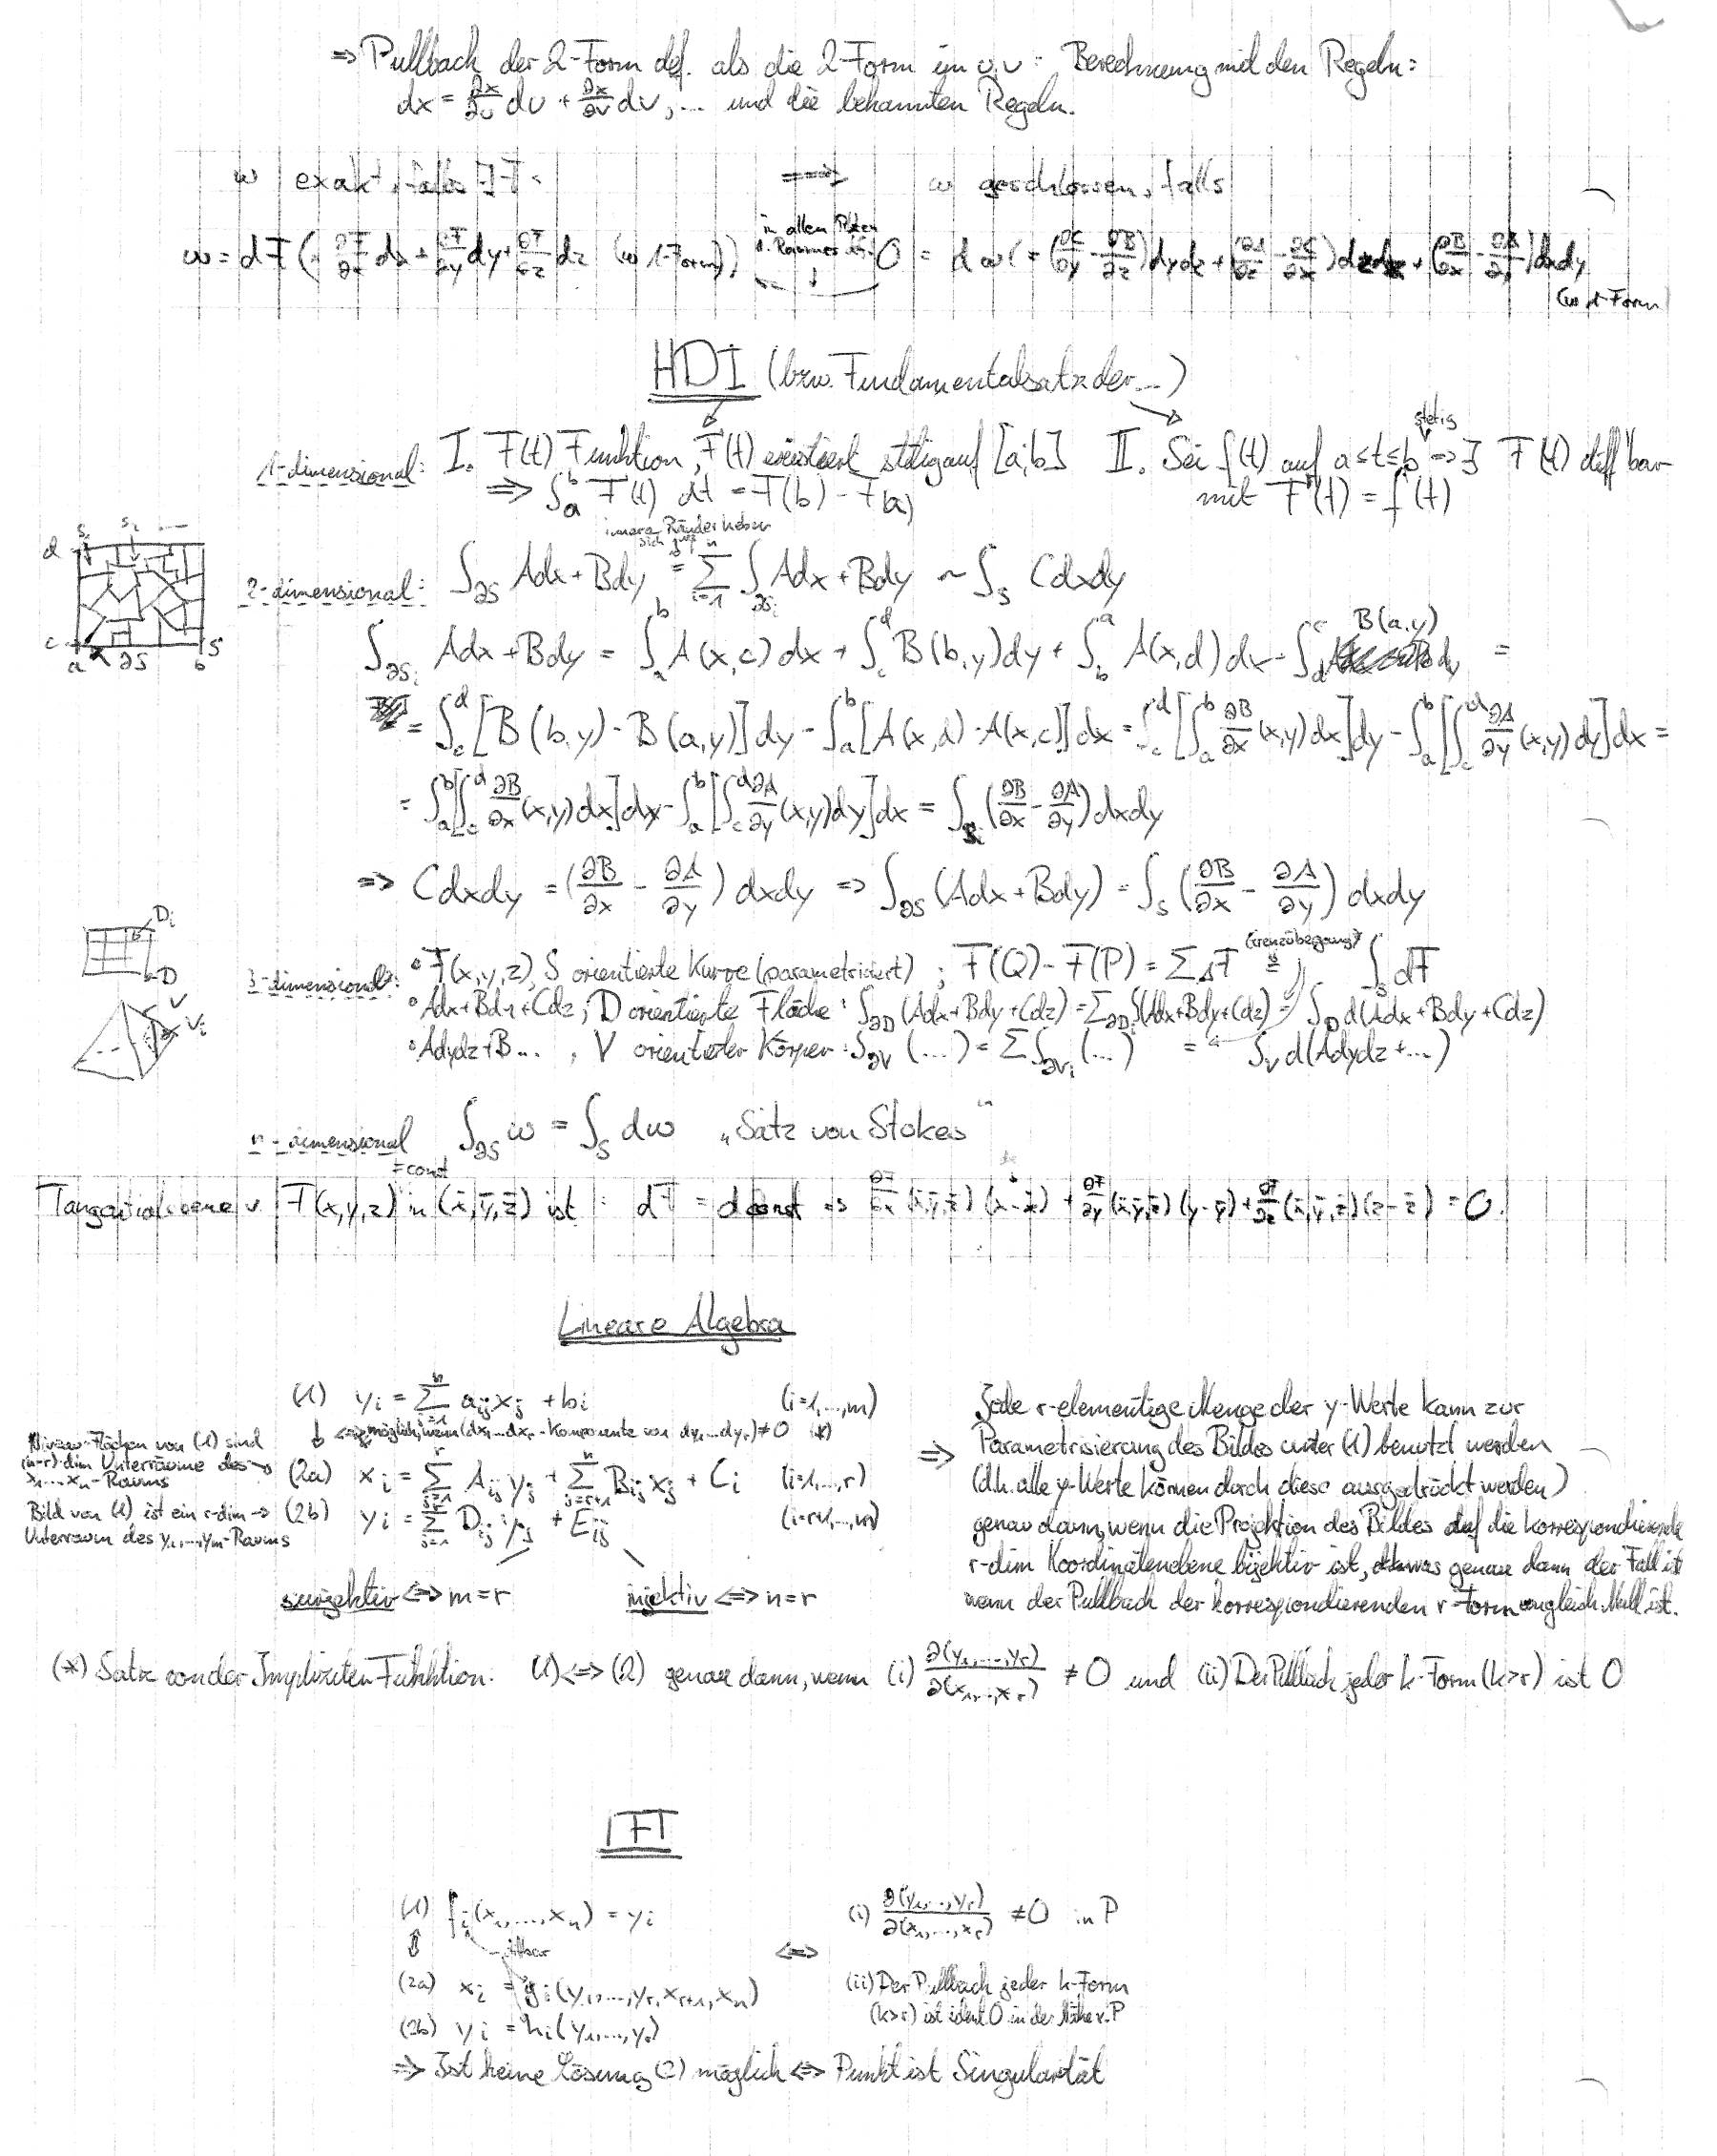 ⇒ Pullback der 2-Form def. als die 2-Form in u,v : Berechnung mit den Regeln:
dx = ∂x/∂u du + ∂x/∂v dv, ... und die bekannten Regeln.
ω exakt, falls ∃ F: ⟹ ω geschlossen, falls
ω = dF (= ∂F/∂x dx + ∂F/∂y dy + ∂F/∂z dz (ω 1-Form)) in allen 0 = dω (= (∂C/∂y - ∂B/∂z) dydz + (∂A/∂z - ∂C/∂x) dzdx + (∂B/∂x - ∂A/∂y) dxdy
(ω 1-Form)
HDI (bzw. Fundamentalsatz der ...)
stetig
1-dimensional: I. F(t) Funktion, F'(t) existiert stetig auf [a,b] II. Sei f(t) auf a≤t≤b ⇒ ∃ F(t) diff'bar
⇒ ∫_a^b F'(t) dt = F(b) - F(a) mit F'(t) = f(t)
innere Ränder heben
sich auf
2-dimensional: ∫_∂S Adx + Bdy = Σ_{i=1}^n ∫_∂S_i Adx + Bdy ~ ∫_S Cdxdy
d c a b S ∂S
B(a,y)
∫_∂S_i Adx + Bdy = ∫_a^b A(x,c) dx + ∫_c^d B(b,y) dy + ∫_b^a A(x,d) dx - ∫_d^c dy =
= ∫_c^d [B(b,y) - B(a,y)] dy - ∫_a^b [A(x,d) - A(x,c)] dx = ∫_c^d [∫_a^b ∂B/∂x (x,y) dx] dy - ∫_a^b [∫_c^d ∂A/∂y (x,y) dy] dx =
= ∫_a^b [∫_c^d ∂B/∂x (x,y) dx] dy - ∫_a^b [∫_c^d ∂A/∂y (x,y) dy] dx = ∫_S_i (∂B/∂x - ∂A/∂y) dxdy
⇒ Cdxdy = (∂B/∂x - ∂A/∂y) dxdy ⇒ ∫_∂S (Adx + Bdy) = ∫_S (∂B/∂x - ∂A/∂y) dxdy
D_i D
V V_i
3-dimensional: ∘ F(x,y,z), S orientierte Kurve (parametrisiert) ; F(Q) - F(P) = Σ ΔF (Grenzübergang) = ∫_S dF
∘ Adx + Bdy + Cdz ; D orientierte Fläche : ∫_∂D (Adx + Bdy + Cdz) = Σ ∫_∂D_i (Adx + Bdy + Cdz) = ∫_D d(Adx + Bdy + Cdz)
∘ Adydz + B... , V orientierter Körper : ∫_∂V (...) = Σ ∫_∂V_i (...) = ∫_V d(Adydz + ...)
n-dimensional ∫_∂S ω = ∫_S dω „Satz von Stokes“
= const
Tangentialebene v. F(x,y,z) in (x̄,ȳ,z̄) ist : dF = d const ⇒ ∂F/∂x (x̄,ȳ,z̄) (x-x̄) + ∂F/∂y (x̄,ȳ,z̄) (y-ȳ) + ∂F/∂z (x̄,ȳ,z̄) (z-z̄) = 0.
Lineare Algebra
(1) y_i = Σ_{j=1}^n a_ij x_j + b_i (i=1,...,m)
⇓ möglich, wenn (dx_1...dx_r - Komponente von dy_1...dy_r) ≠ 0 (*)
Niveau-Flächen von (1) sind
(n-r)-dim Unterräume des →
x_1...x_n-Raums
(2a) x_i = Σ_{j=1}^r A_ij y_j + Σ_{j=r+1}^n B_ij x_j + C_i (i=1,...,r)
Bild von (1) ist ein r-dim →
Unterraum des y_1,...,y_m-Raums
(2b) y_i = Σ_{j=1}^r D_ij y_j + E_ij (i=r+1,...,m)
surjektiv ⟺ m=r injektiv ⟺ n=r
⇒ Jede r-elementige Menge der y-Werte kann zur
Parametrisierung des Bildes unter (1) benutzt werden
(d.h. alle y-Werte können durch diese ausgedrückt werden)
genau dann, wenn die Projektion des Bildes auf die korrespondierende
r-dim Koordinatenebene bijektiv ist, was genau dann der Fall ist
wenn der Pullback der korrespondierenden r-Form ungleich Null ist.
(*) Satz von der Impliziten Funktion: (1) ⟺ (2) genau dann, wenn (i) ∂(y_1,...,y_r)/∂(x_1,...,x_r) ≠ 0 und (ii) Der Pullback jeder k-Form (k>r) ist 0
IFT
(1) f_i(x_1,...,x_n) = y_i
⇕ diffbar
(2a) x_i = g_i(y_1,...,y_r,x_{r+1},x_n)
(2b) y_i = h_i(y_1,...,y_r)
⟺
(i) ∂(y_1,...,y_r)/∂(x_1,...,x_r) ≠ 0 in P
(ii) Der Pullback jeder k-Form
(k>r) ist ident. 0 in der Nähe v. P
⇒ Ist keine Lösung (2) möglich ⟺ Punkt ist Singularität